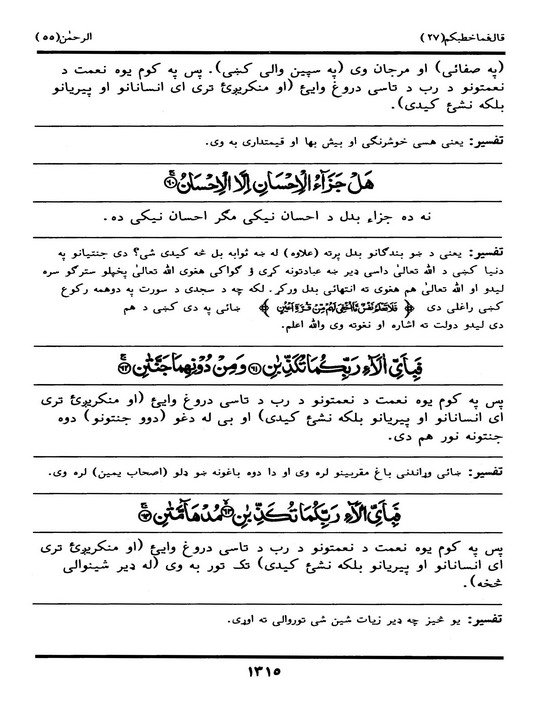 قال‌فماخطبکم(۲۷) الرحمٰن(۵۵)
(په صفائی) او مرجان وی (په سپین والی کښی). پس په کوم یوه نعمت د
نعمتونو د رب د تاسی دروغ وایئ (او منکریږئ تری ای انسانانو او پیریانو
بلکه نشئ کیدی).
تفسیر: یعنی هسی خوشرنگی او بیش بها او قیمتداری به وی.
هَلْ جَزَآءُ الْاِحْسَانِ اِلَّا الْاِحْسَانُ ۶۰
نه ده جزاء بدل د احسان نیکی مگر احسان نیکی ده.
تفسیر: یعنی د ښو بندگانو بدل پرته (علاوه) له ښه ثوابه بل څه کیدی شی؟ دی جنتیانو په
دنیا کښی د الله تعالیٰ داسی ډیر ښه عبادتونه کړی ؤ گواکی هغوی الله تعالیٰ پخپلو سترگو سره
لیدو او الله تعالیٰ هم هغوی ته انتهائی بدل ورکړ. لکه چه د سجدی د سورت په دوهمه رکوع
کښی راغلی دی ﴿ فَلَاتَعْلَمُ نَفْسٌ مَّآاُخْفِیَ لَهُمْ مِّنْ قُرَّةِ اَعْیُنٍ ﴾ ښائی په دی کښی د هم
دی لیدو دولت ته اشاره او نغوته وی والله اعلم.
فَبِاَیِّ اٰلَآءِ رَبِّکُمَا تُکَذِّبٰنِ ۶۱ وَمِنْ دُوْنِهِمَا جَنَّتٰنِ ۶۲
پس په کوم یوه نعمت د نعمتونو د رب د تاسی دروغ وایئ (او منکریږئ تری
ای انسانانو او پیریانو بلکه نشئ کیدی) او بی له دغو (دوو جنتونو) دوه
جنتونه نور هم دی.
تفسیر: ښائی وړاندنی باغ مقربینو لره وی او دا دوه باغونه ښو ډلو (اصحاب یمین) لره وی.
فَبِاَیِّ اٰلَآءِ رَبِّکُمَا تُکَذِّبٰنِ ۶۳ مُدْهَآمَّتٰنِ ۶۴
پس په کوم یوه نعمت د نعمتونو د رب د تاسی دروغ وایئ (او منکریږئ تری
ای انسانانو او پیریانو بلکه نشئ کیدی) تک تور به وی (له ډیر شینوالی
څخه).
تفسیر: یو څیز چه ډیر زیات شین شی توروالی ته اوړی.
۱۳۱۵